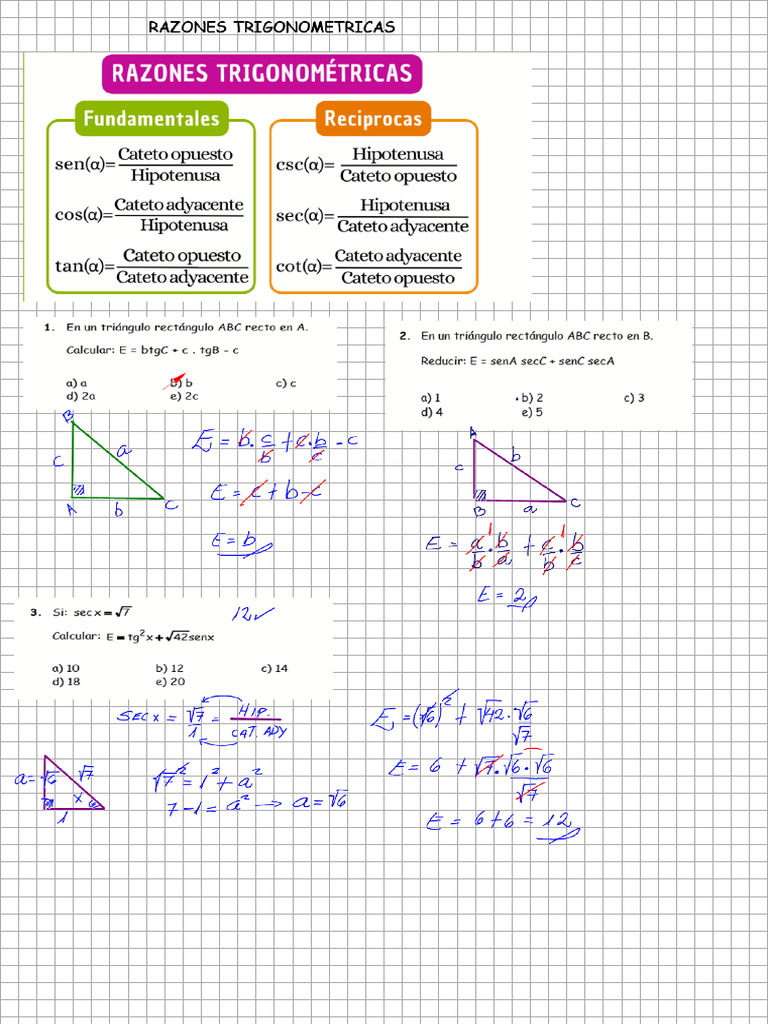 RAZONES TRIGONOMETRICAS
RAZONES TRIGONOMÉTRICAS
Fundamentales
sen(α)= Cateto opuesto / Hipotenusa
cos(α)= Cateto adyacente / Hipotenusa
tan(α)= Cateto opuesto / Cateto adyacente
Reciprocas
csc(α)= Hipotenusa / Cateto opuesto
sec(α)= Hipotenusa / Cateto adyacente
cot(α)= Cateto adyacente / Cateto opuesto
1. En un triángulo rectángulo ABC recto en A.
Calcular: E = btgC + c . tgB - c
a) a b) b c) c
d) 2a e) 2c
B
c a
A b C
E = b. c/b + c. b/c - c
E = c + b - c
E = b
2. En un triángulo rectángulo ABC recto en B.
Reducir: E = senA secC + senC secA
a) 1 b) 2 c) 3
d) 4 e) 5
A
c b
B a C
E = a/b . b/a + c/b . b/c
1 1
E = 2
3. Si: sec x = √7
Calcular: E = tg²x + √42 senx
a) 10 b) 12 c) 14
d) 18 e) 20
12 ✓
SEC x = √7/1 = HIP. / CAT. ADY
a = √6 √7
x
1
√7² = 1² + a²
7 - 1 = a² → a = √6
E = (√6)² + √42 . √6/√7
E = 6 + √7 . √6 . √6 / √7
E = 6 + 6 = 12